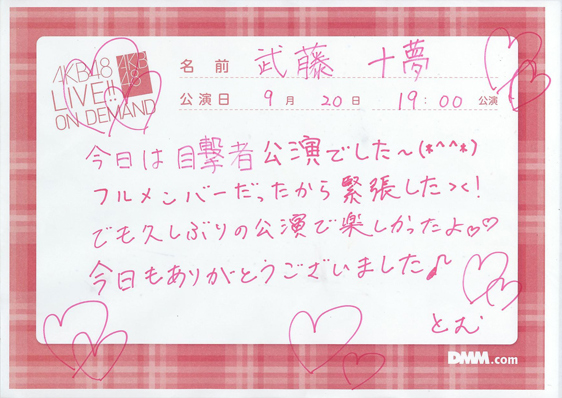 AKB48
LIVE!!
ON DEMAND
AKB
48
名前 武藤 十夢
公演日 9月 20日 19:00 公演
今日は目撃者公演でした〜(*^^*)
フルメンバーだったから緊張した><!
でも久しぶりの公演で楽しかったよ♡♡
今日もありがとうございました♪
とむ
DMM.com